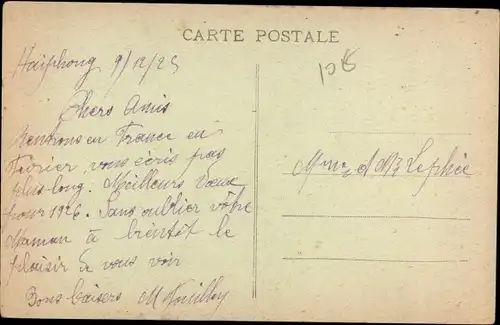 CARTE POSTALE
Haiphong 9/12/25
Chers Amis
Rentrons en France en
Février, vous écris pas
plus long. Meilleurs Voeux
pour 1926. Sans oublier vôtre
Maman à bientôt le
plaisir de vous voir
Bons baisers M
Mme et Mr